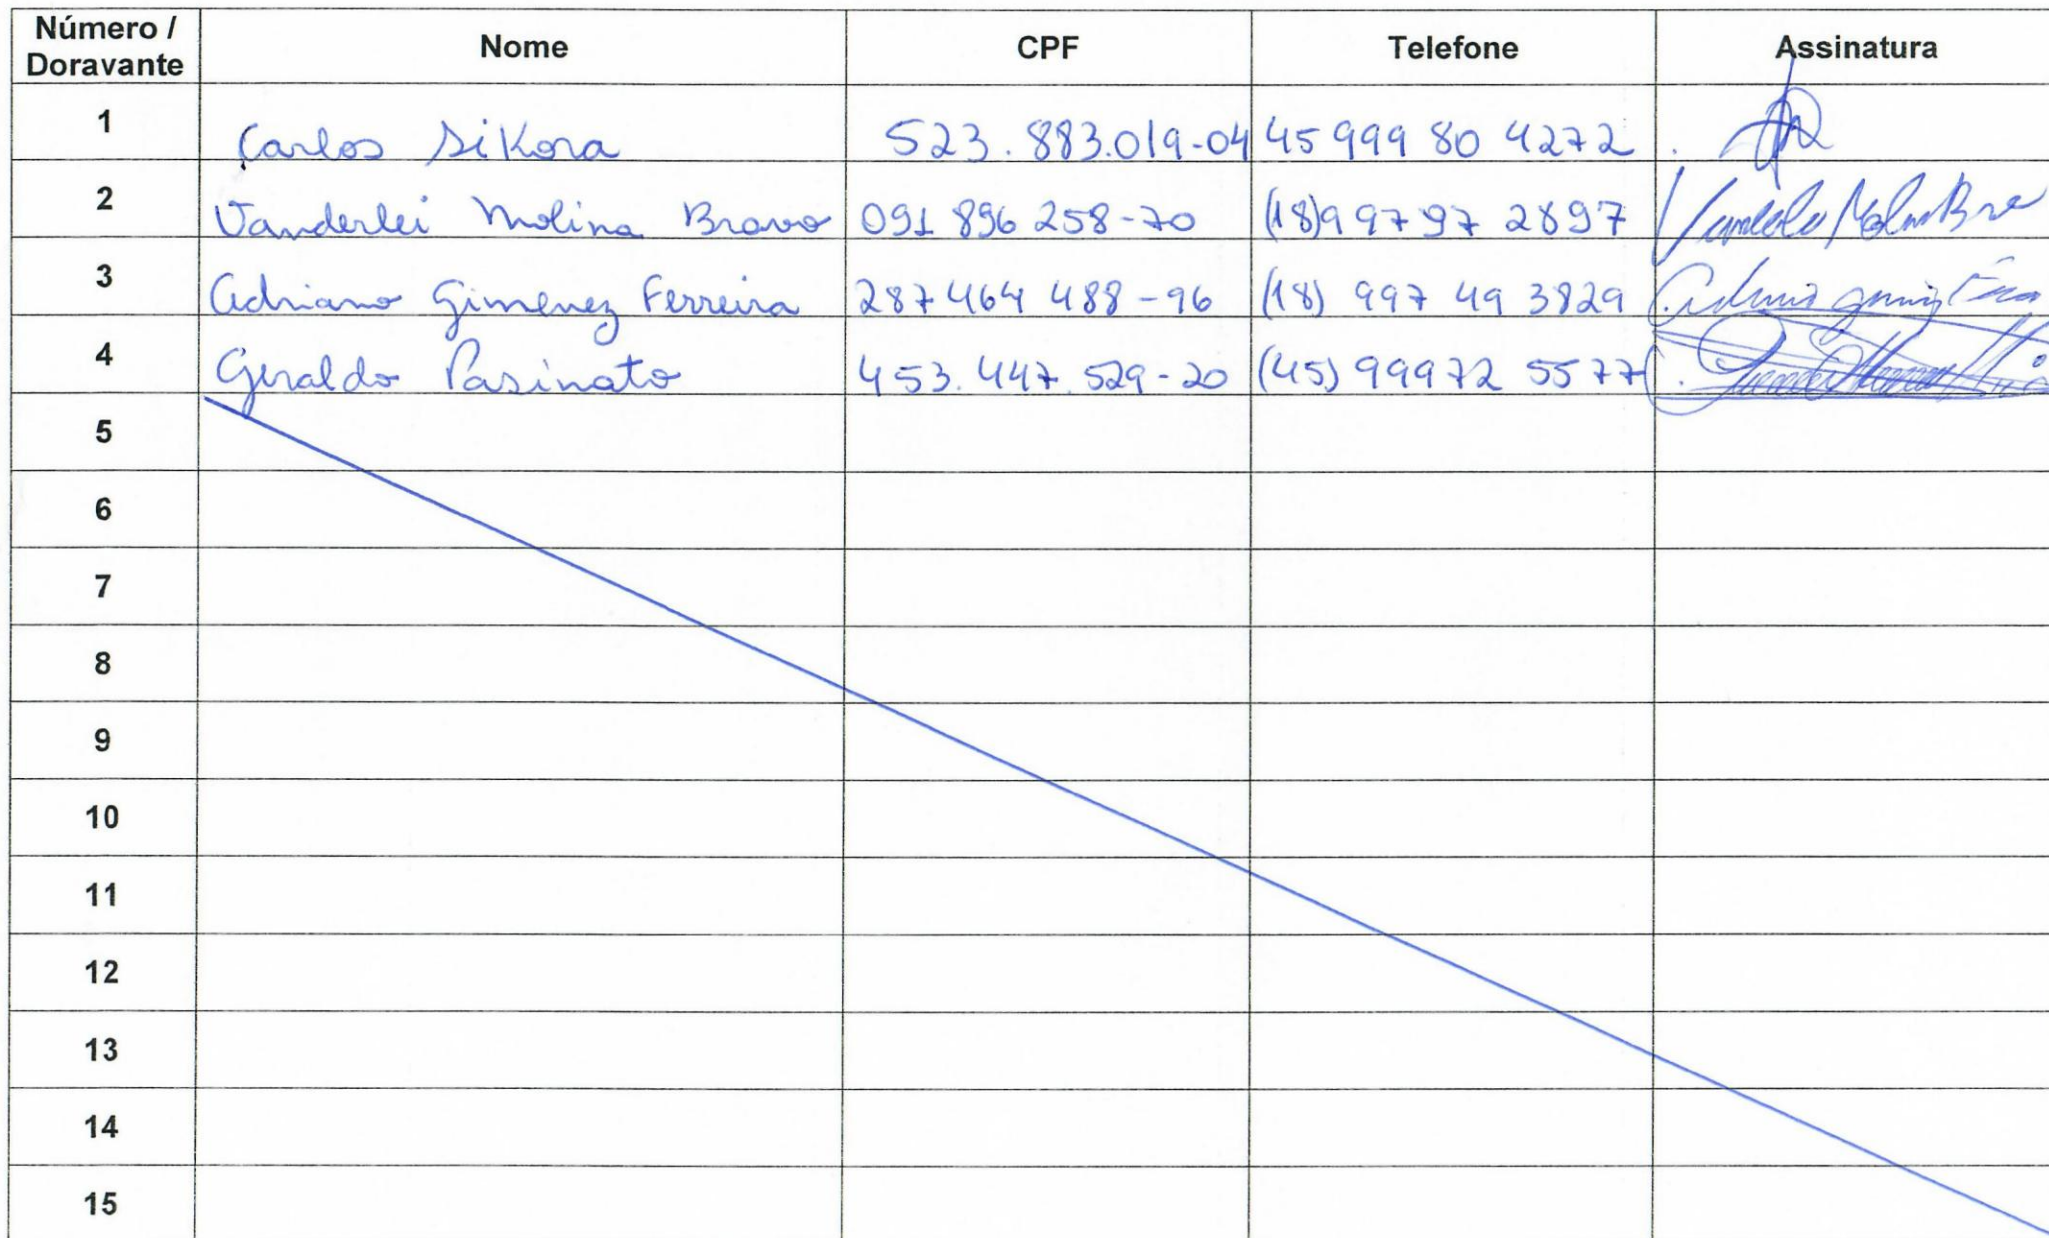 Número / Doravante Nome CPF Telefone Assinatura
1 Carlos Sikora 523.883.019-04 45 999 80 4272
2 Vanderlei Molina Bravo 091 896 258-70 (18)9 97 97 2897
3 Adriano Gimenez Ferreira 287 464 488-96 (18) 997 49 3829
4 Geraldo Pasinato 453.447.529-20 (45) 99972 5577
5
6
7
8
9
10
11
12
13
14
15